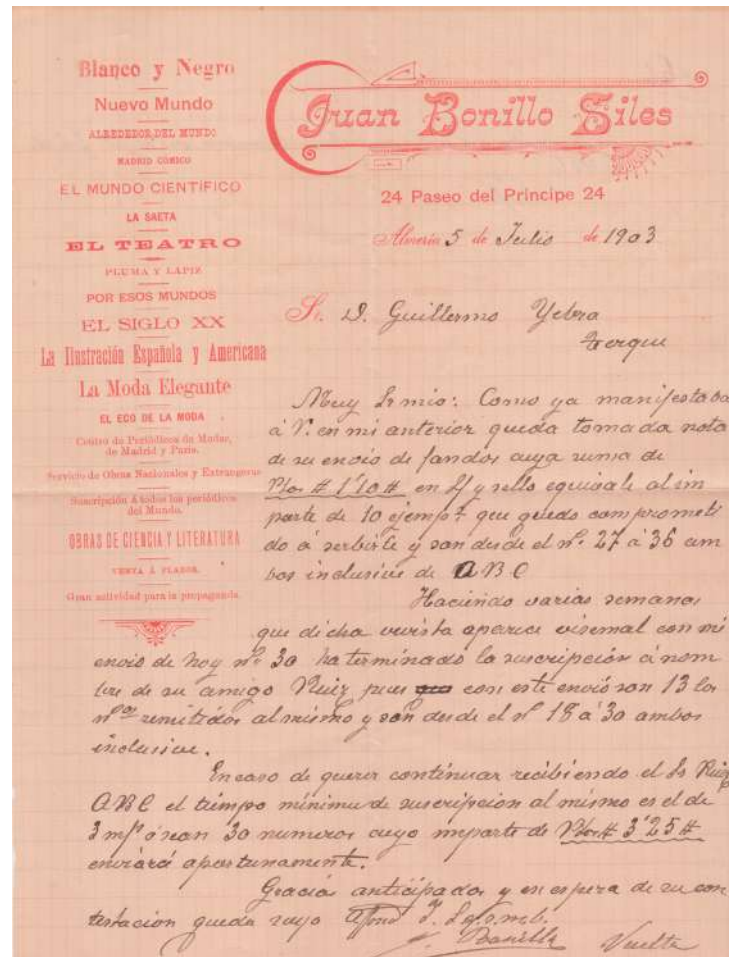 Blanco y Negro
Nuevo Mundo
ALREDEDOR DEL MUNDO
MADRID CÓMICO
EL MUNDO CIENTÍFICO
LA SAETA
EL TEATRO
PLUMA Y LAPIZ
POR ESOS MUNDOS
EL SIGLO XX
La Ilustración Española y Americana
La Moda Elegante
EL ECO DE LA MODA
Centro de Periódicos de Modas,
de Madrid y Paris.
Servicio de Obras Nacionales y Extrangeras
Suscripción á todos los periódicos
del Mundo.
OBRAS DE CIENCIA Y LITERATURA
VENTA Á PLAZOS.
Gran actividad para la propaganda.
Juan Bonillo Siles
24 Paseo del Principe 24
Almería 5 de Julio de 1903
Sr. D. Guillermo Yebra
Terque
Muy Sr mio: Como ya manifestaba
á V. en mi anterior queda tomada nota
de su envio de fondos cuya suma de
Ptas # 1'10 # en y sello equivale al im
porte de 10 ejemps que quedo comprometi
do á serbirle y son desde el nº. 27 á 36 am
bos inclusive de ABC
Haciendo varias semanas
que dicha revista aparece visemal con mi
envio de hoy nº 30 ha terminado la suscripción á nom
bre de su amigo Ruiz pues con este envió son 13 los
nos remitidos al mismo y son desde el nº 18 á 30 ambos
inclusive.
En caso de querer continuar recibiendo el Sr Ruiz
ABC el tiempo minimu de suscripcion al mismo es el de
3 ó sean 30 numeros cuyo importe de Ptas # 3'25 #
enviará oportunamente.
Gracias anticipadas y en espera de su con
testación queda suyo afmo S. S. q. s. m. b.
J. Bonillo Vuelta